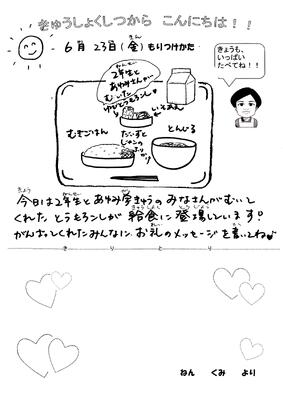 きゅうしょくしつから こんにちは！！
6月 23日(金) もりつけかた
きょうも、
いっぱい
たべてね！！
2年生と
あゆみさんが
むいた
ゆびとうもろこし
いそあえ
むぎごはん
だいずと
じゃこの
とんじる
今日は2年生とあゆみ学きゅうのみなさんがむいて
くれた とうもろこしが 給食に登場しています！
がんばってくれたみんなに お礼のメッセージを書いてね♥
きりとり
ねん くみ より